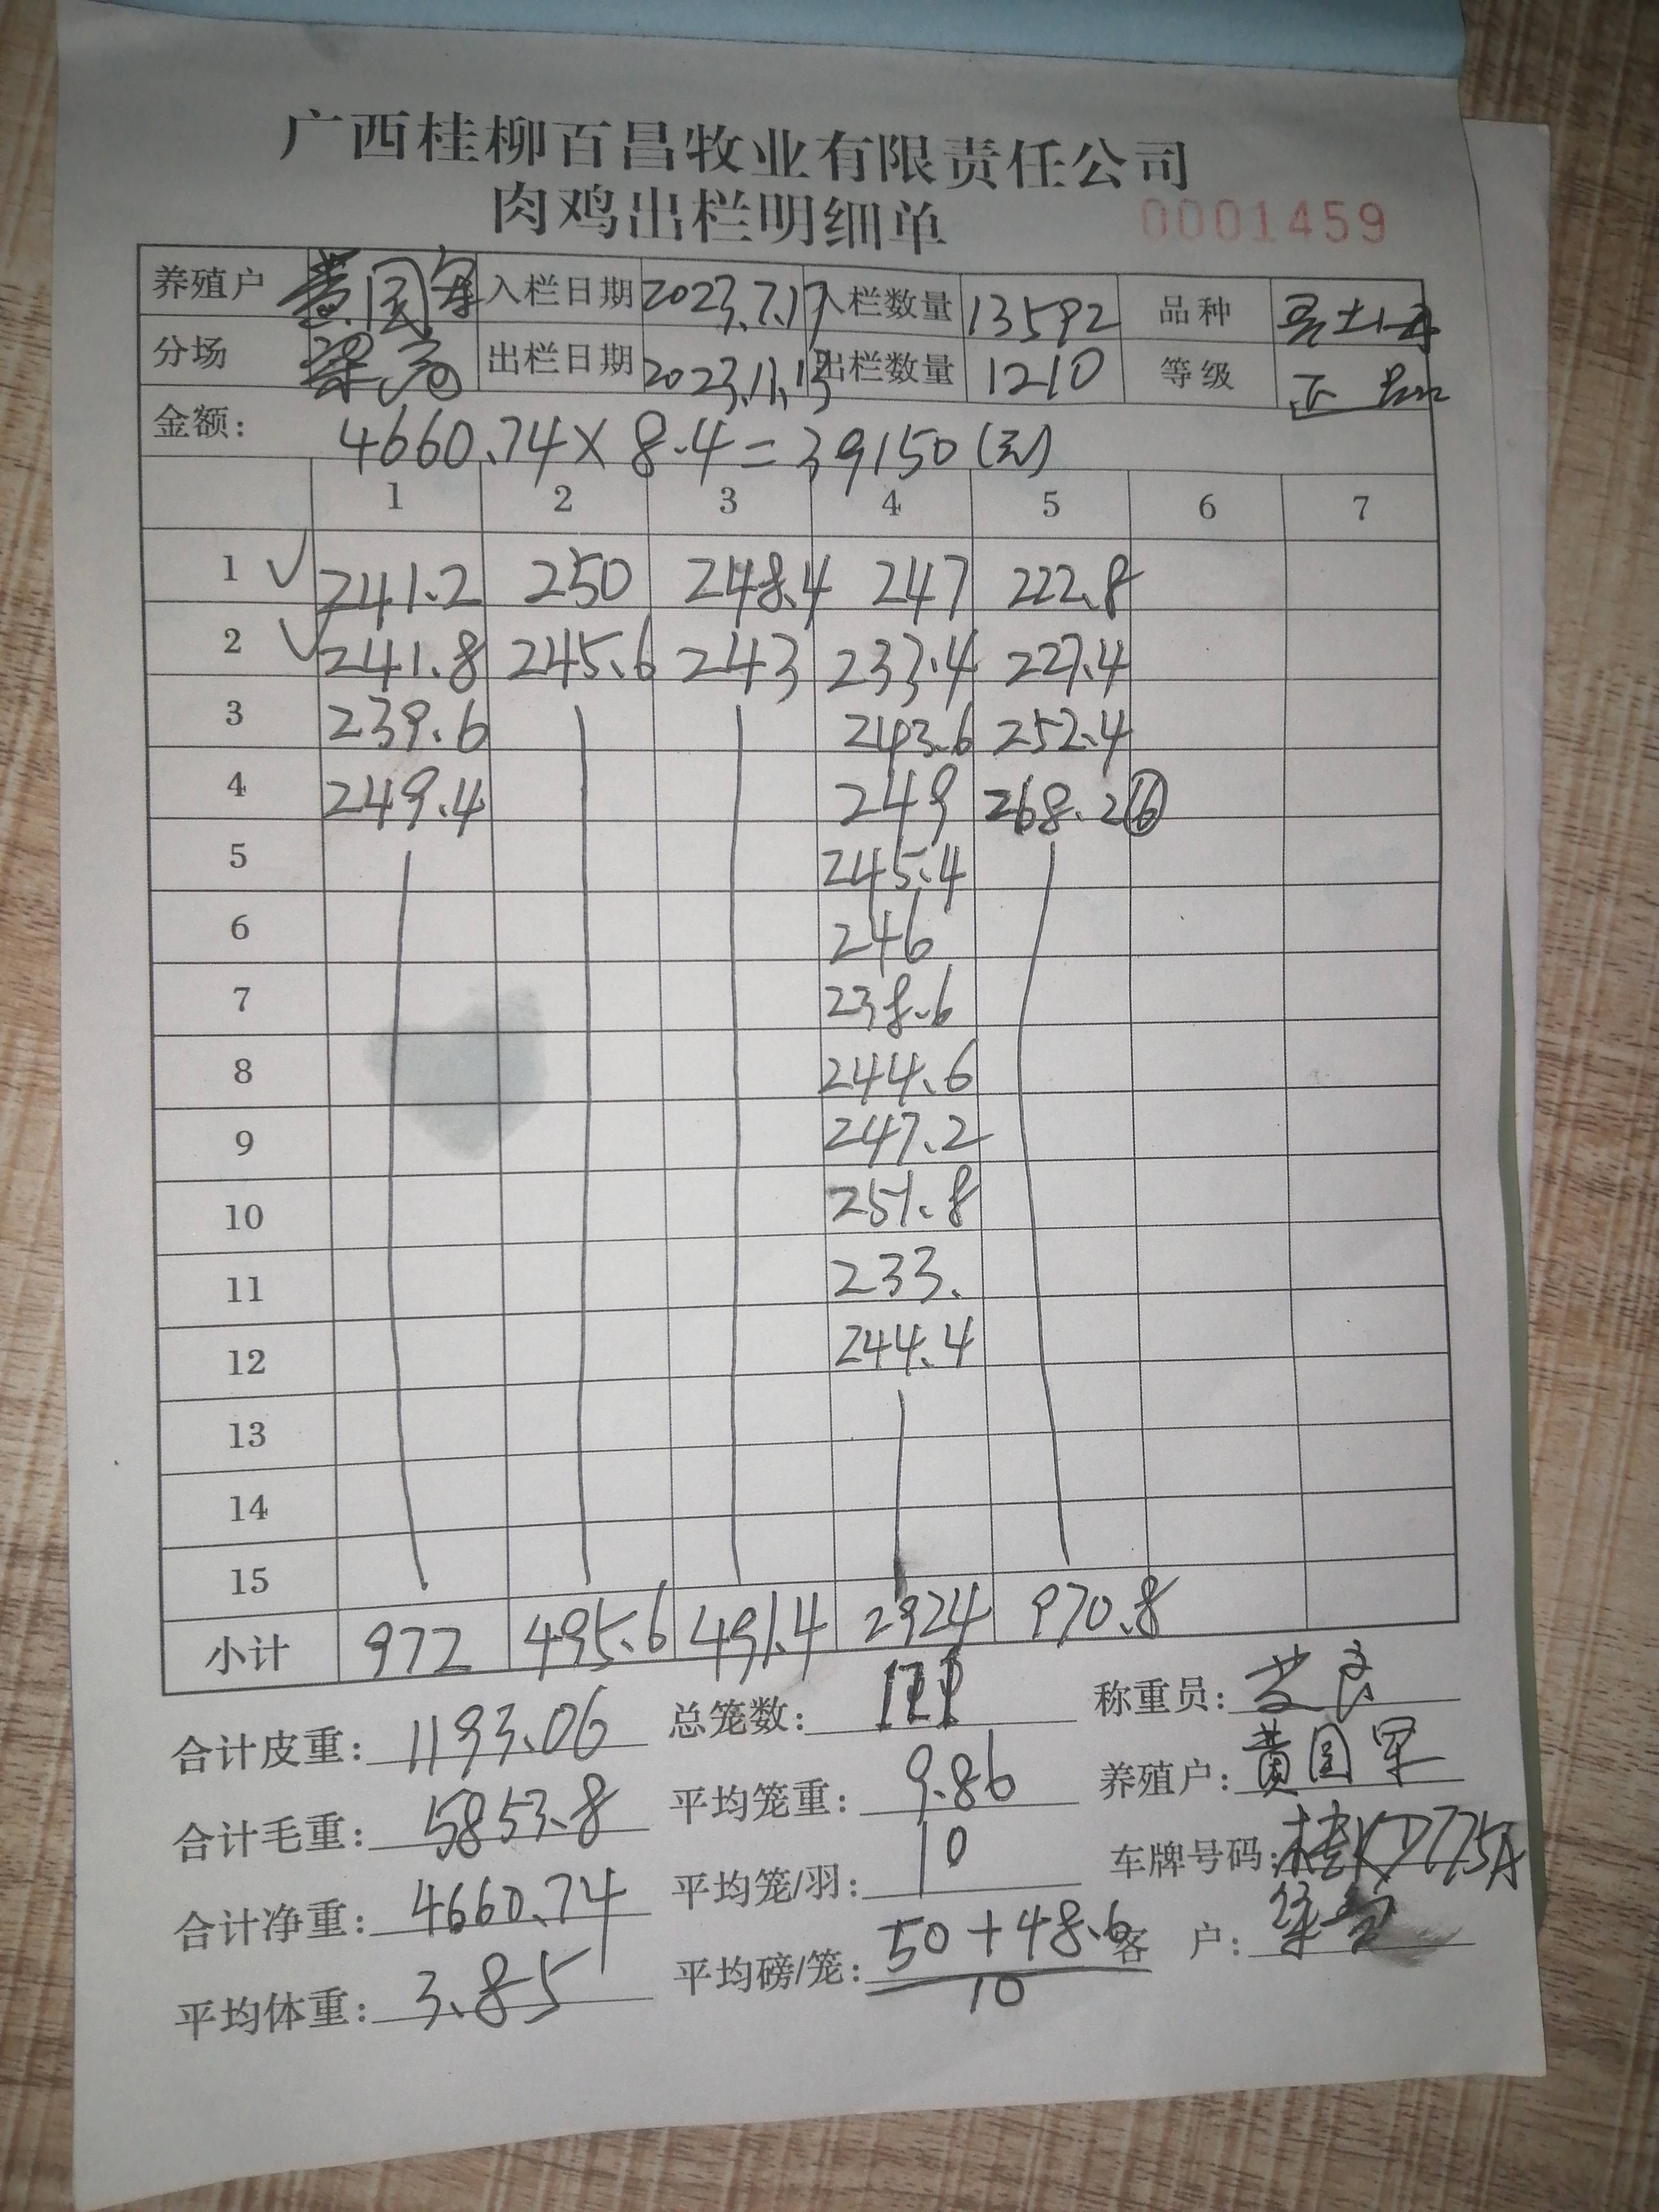 广西桂柳百昌牧业有限责任公司
肉鸡出栏明细单 0001459
养殖户 黄国军 入栏日期 2023.7.17 入栏数量 13592 品种
分场 出栏日期 2023.11.13 出栏数量 1210 等级 正品
金额: 4660.74×8.4=39150(元)
1 2 3 4 5 6 7
1 ✓ 241.2 250 248.4 247 222.8
2 ✓ 241.8 245.6 243 233.4 227.4
3 239.6 243.6 252.4
4 249.4 249 268.2 ⑯
5 245.4
6 246
7 238.6
8 244.6
9 247.2
10 251.8
11 233.
12 244.4
13
14
15
小计 972 495.6 491.4 2924 970.8
合计皮重: 1193.06 总笼数: 121 称重员:
合计毛重: 5853.8 平均笼重: 9.86 养殖户: 黄国军
合计净重: 4660.74 平均笼/羽: 10 车牌号码:
平均体重: 3.85 平均磅/笼: 50+48.6 客户:
10